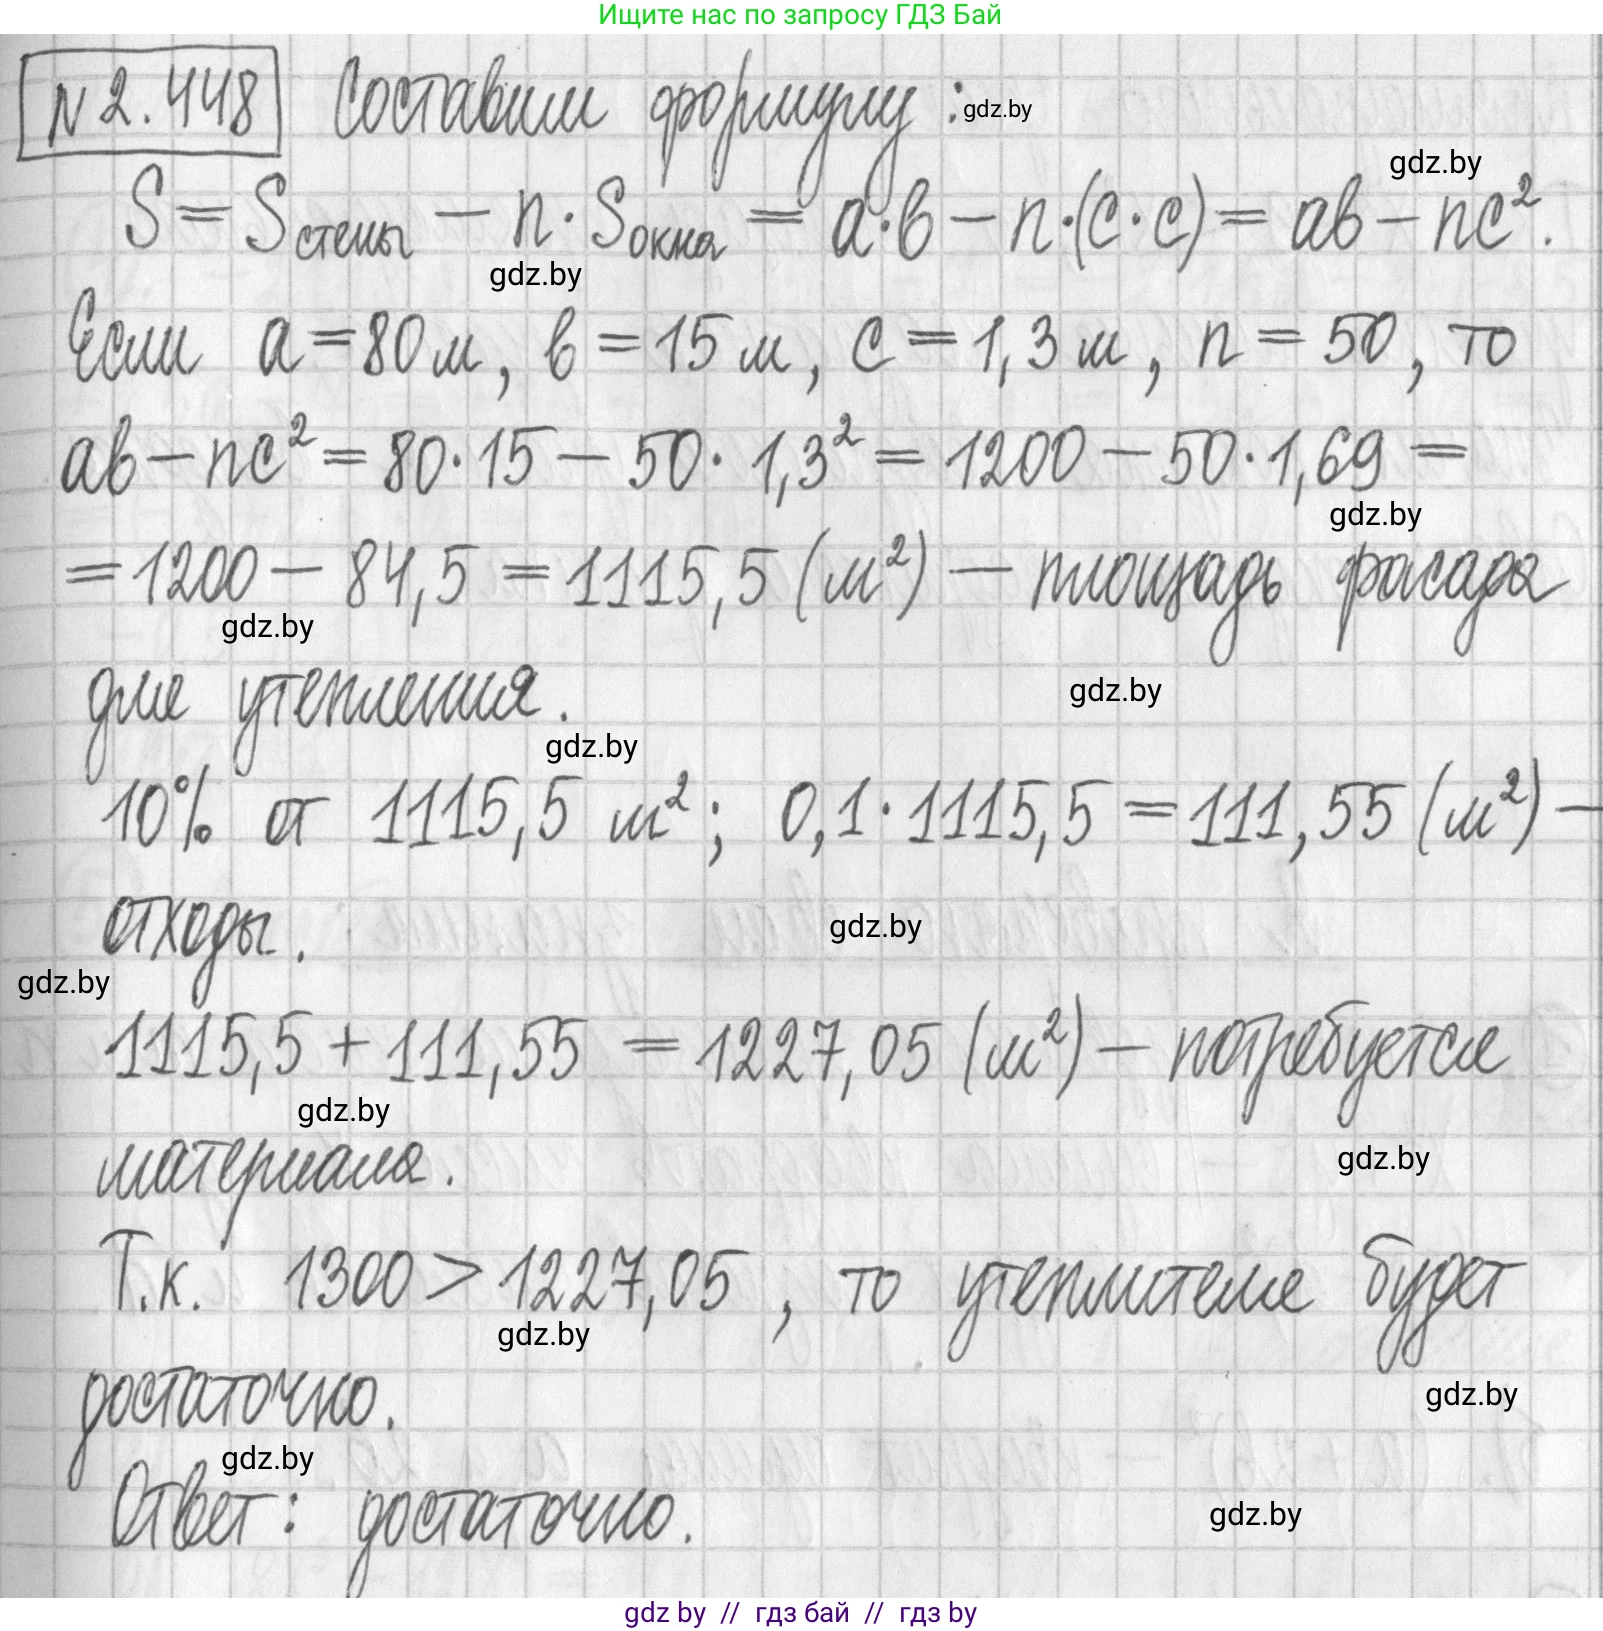 Ищите нас по запросу ГДЗ Бай
N 2.448 Составим формулу: gdz.by
gdz.by
S = Sстены − n · Sокна = a·b − n·(c·c) = ab − nc².
gdz.by
Если a = 80 м, b = 15 м, c = 1,3 м, n = 50, то
ab − nc² = 80·15 − 50 · 1,3² = 1200 − 50·1,69 =
gdz.by
= 1200 − 84,5 = 1115,5 (м²) − площадь фасада
gdz.by
для утепления.
gdz.by
gdz.by
10% от 1115,5 м²; 0,1·1115,5 = 111,55 (м²) −
отходы.
gdz.by
gdz.by
1115,5 + 111,55 = 1227,05 (м²) − потребуется
gdz.by
материала.
gdz.by
Т.к. 1300 > 1227,05, то утеплителя будет
gdz.by
достаточно.
gdz.by
gdz.by
Ответ: достаточно.
gdz.by
gdz by // гдз бай // гдз by